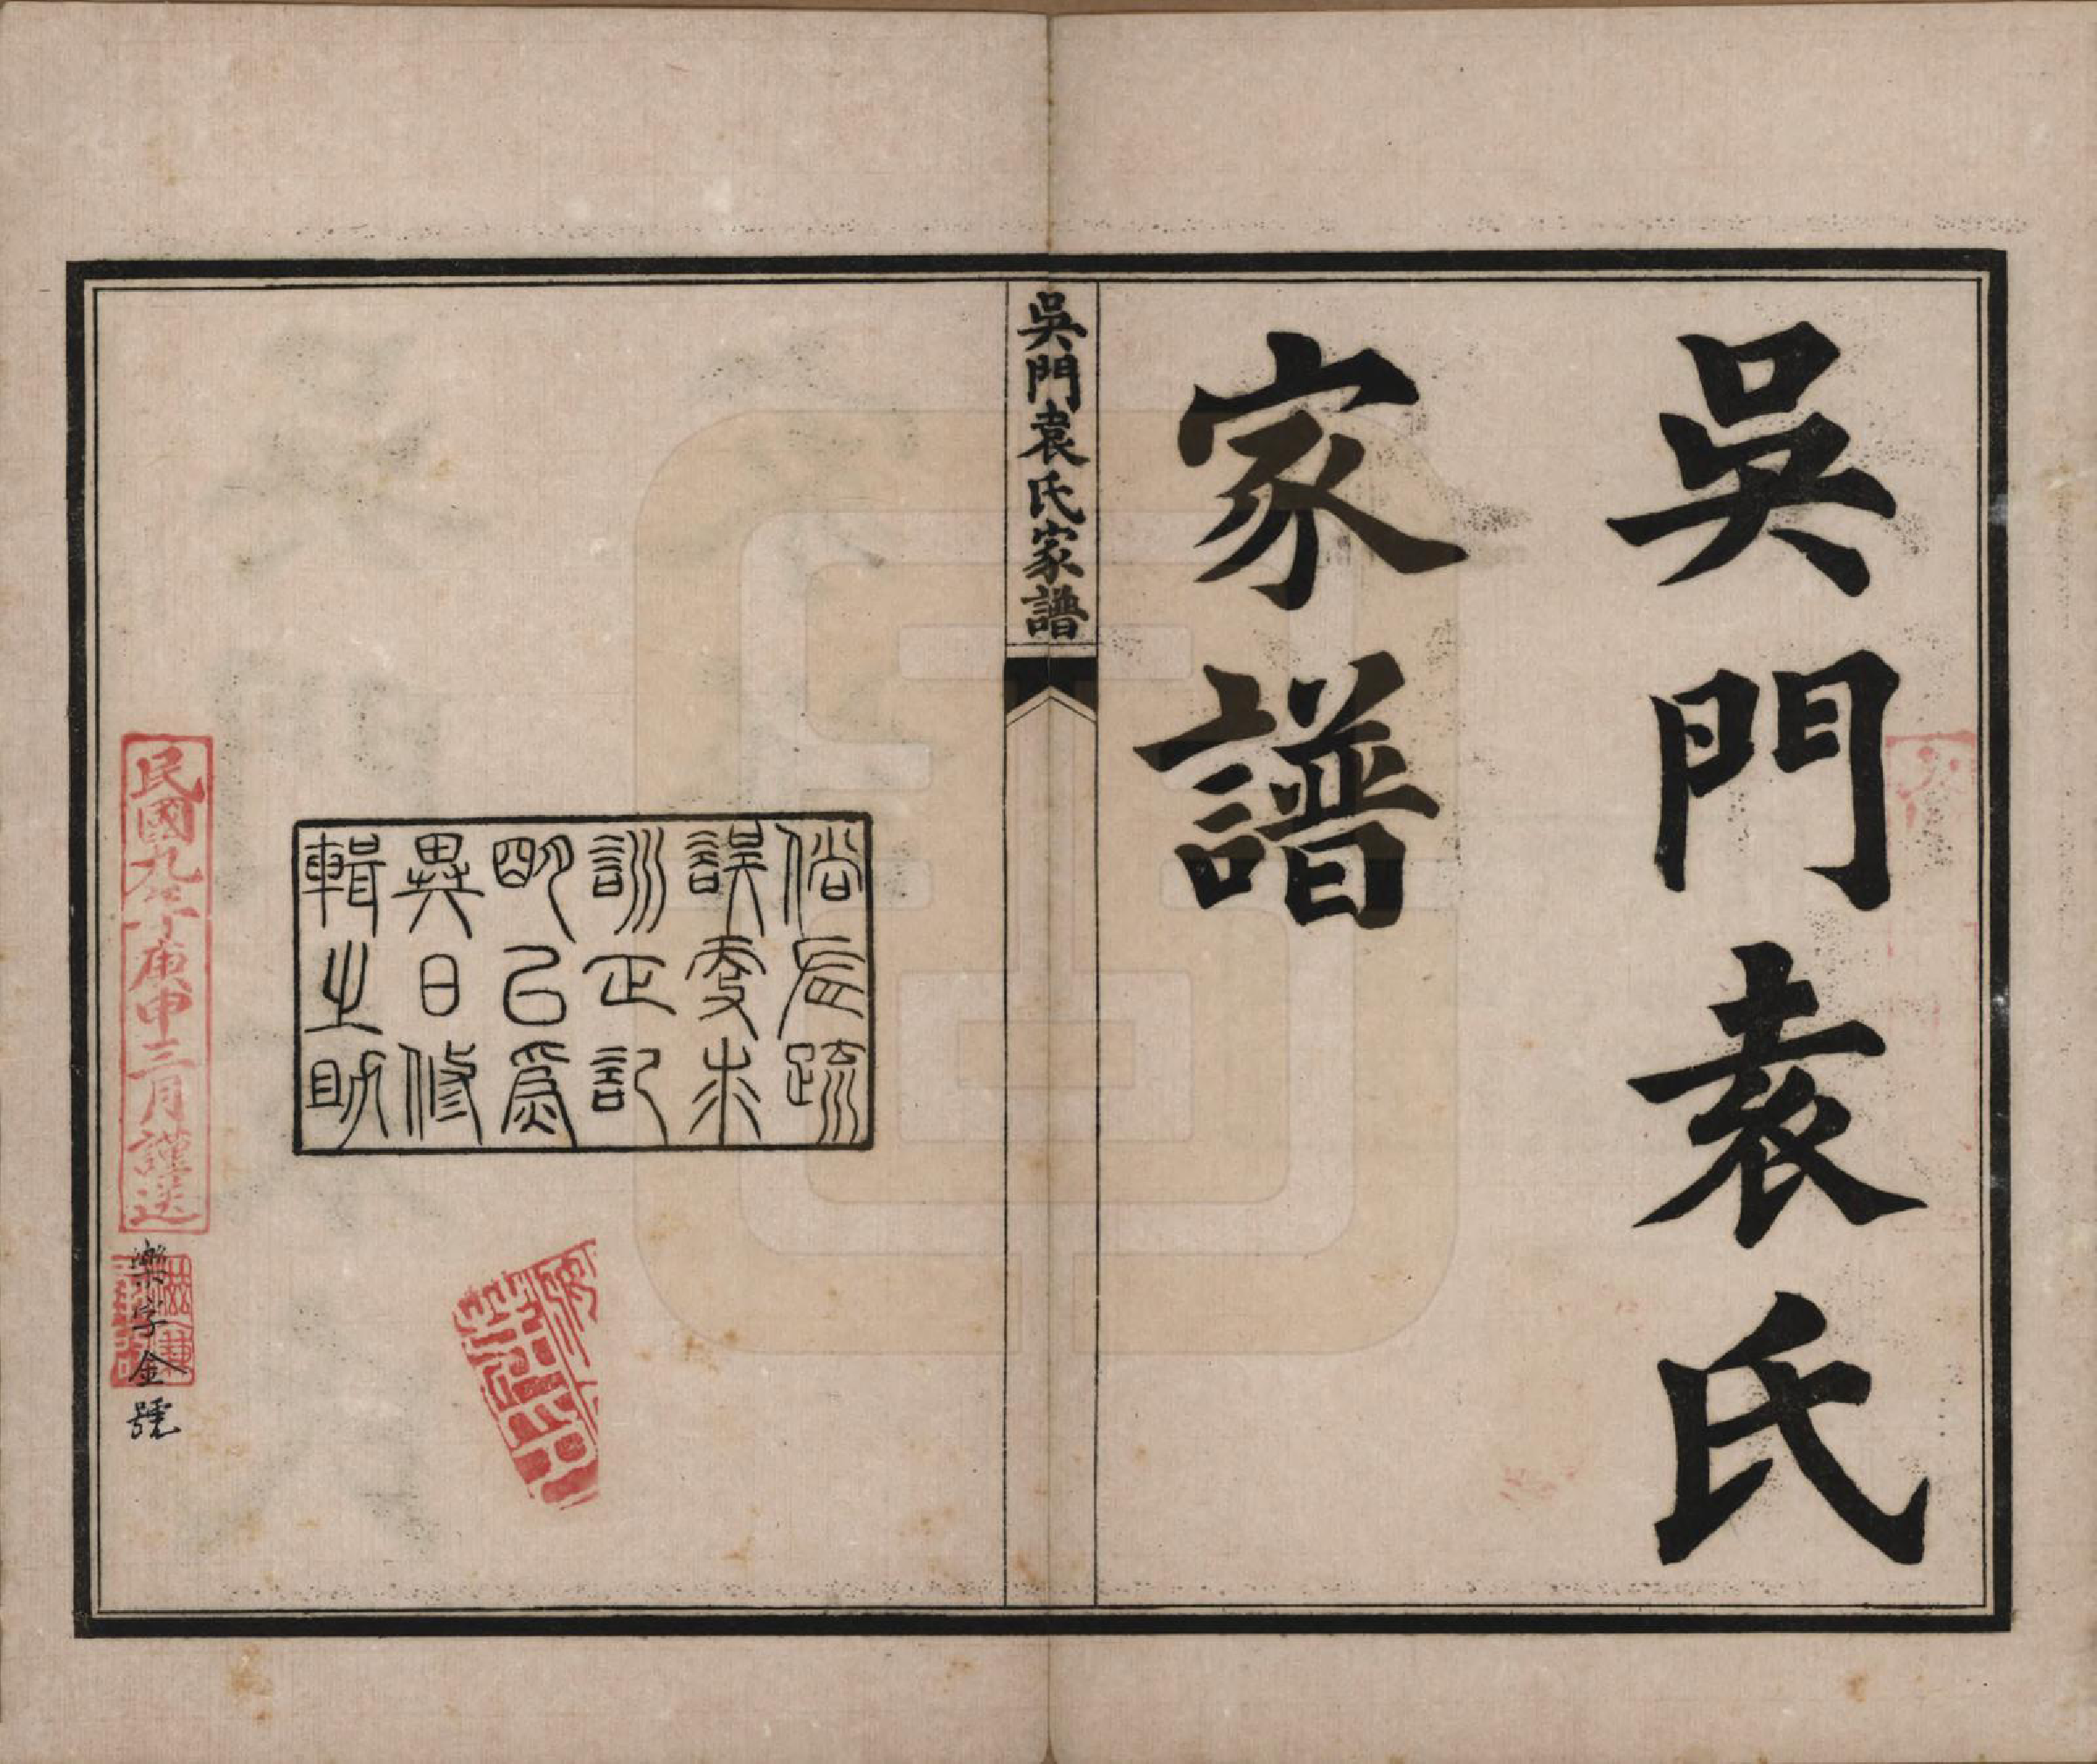 吳門袁氏
家譜
吳門袁氏家譜
倘有疏
誤處求
訓正記
明㠯爲
異日修
輯之助
民國九年庚申三月謹送
樂字金號